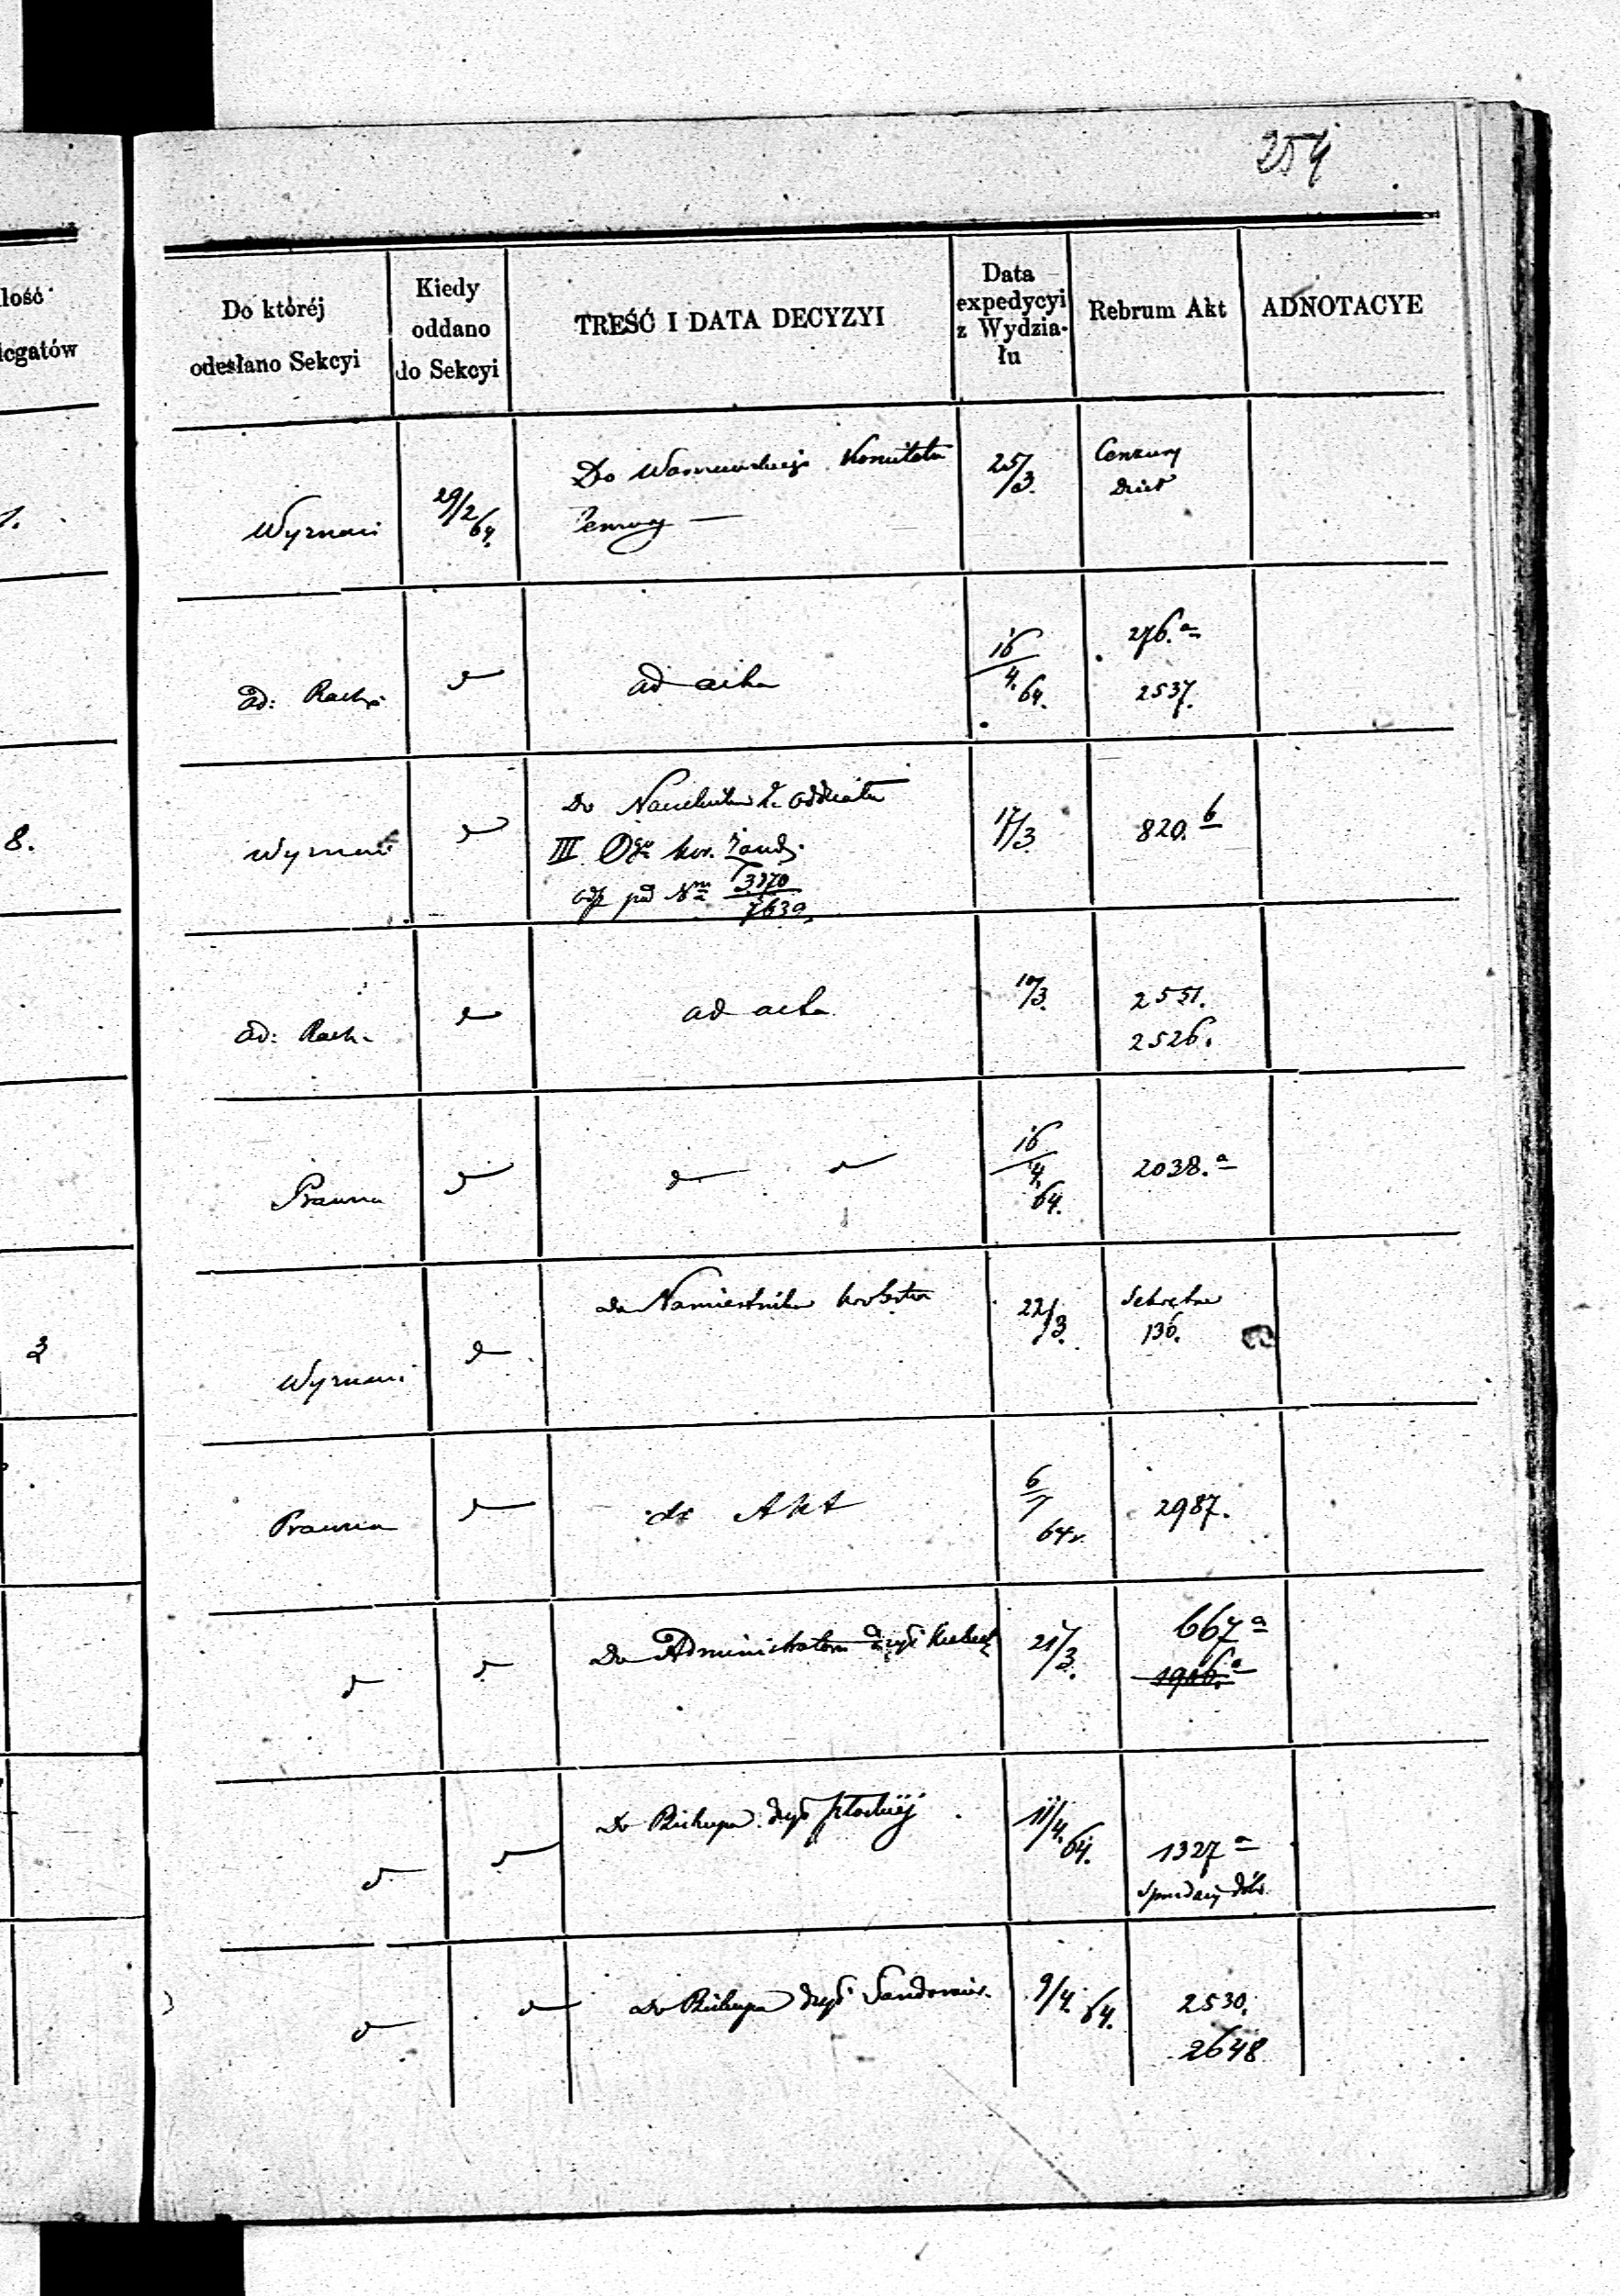 254
lość
legatów
Do któréj
odesłano Sekcyi
Kiedy
oddano
do Sekcyi
TREŚĆ I DATA DECYZYI
Data
expedycyi
z Wydzia-
łu
Rebrum Akt
ADNOTACYE
1.
Wyznań
29/2 64.
Do Warszawskiego Komitetu
Cenzury —
25/3.
Cenzury
Dzieł
ad: Rach:
ad acta
16/4. 64.
276.a
2537.
8.
Wyznań
Do Naczelnika
III Kor. Żand.
pod Nm 3370/7639
17/3.
820. b
ad: Rach.
ad acta
10/3.
2551.
2526.
Prawna
16/4. 64.
2038.a
3
Wyznań
do Namiestnika Królestwa
22/3.
Sekretne
136.
Prawna
do Akt
6/7 64 r.
2987.
Do Administratora Dyec
21/3.
667 a
Do Biskupa Dyec Płockiéj
11/4. 64.
1327 a
Sprzedaży dóbr
Do Biskupa Dyec Sandomir.
9/4. 64.
2530.
2648